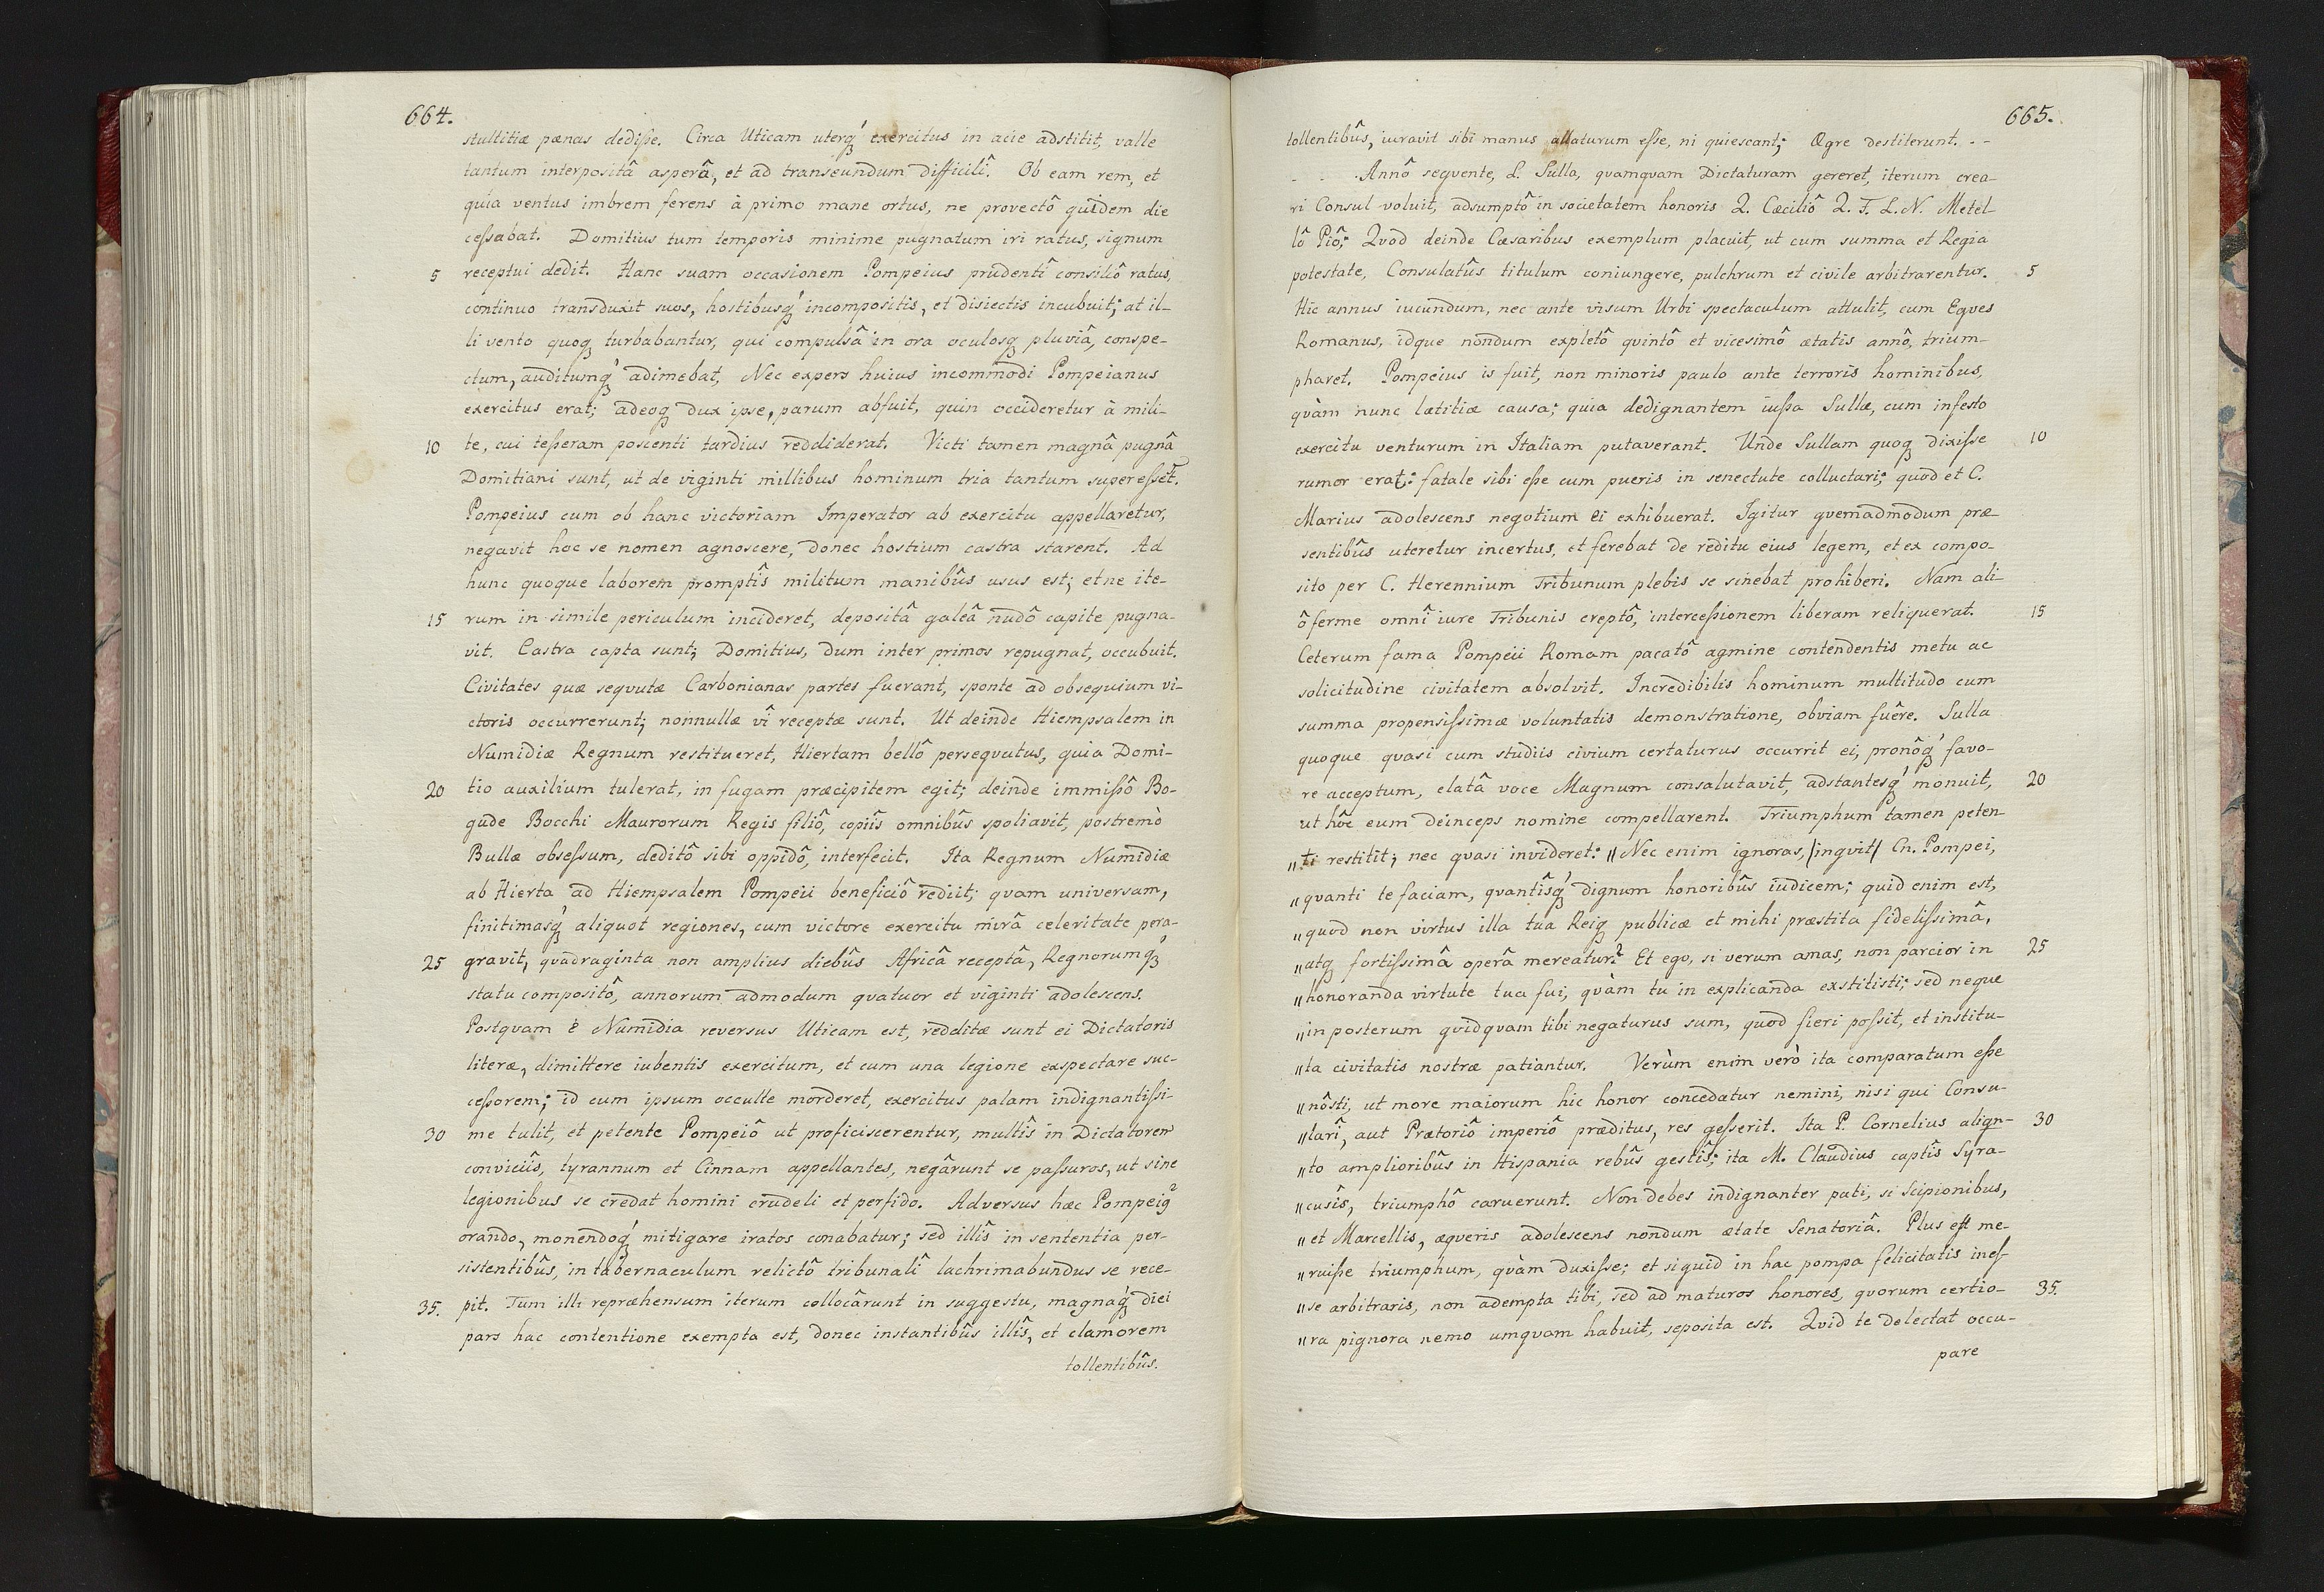 664.
stultitiæ pænas dediſse. Circa Uticam uterq́ꝫ exercitus in acie adstitit, valle
tantum interpositâ asperâ, et ad transeundum difficilî. Ob eam rem, et
quia ventus imbrem ferens à primo mane ortus, ne provectô quidem die
ceſsabat. Domitius tum temporis minime pugnatum iri ratus, signum
5 receptui dedit. Hanc suam occasionem Pompeius prudentî consiliô ratus,
continuo transduxit suos, hostibusq́ꝫ incompositis, et disiectis incubuit; at il-
li vento quoqꝫ turbabantur, qui compulsâ in ora oculosqꝫ pluviâ, conspe-
ctum, auditumq́ꝫ adimebat, Nec expers huius incommodi Pompeianus
exercitus erat; adeoqꝫ dux ipse, parum abfuit, quin occideretur à mili-
10 te, cui teſseram poscenti tardius reddiderat. Victi tamen magnâ pugnâ
Domitiani sunt, ut de viginti millibus hominum tria tantum supereſset.
Pompeius cum ob hanc victoriam Imperator ab exercitu appellaretur,
negavit hoc se nomen agnoscere, donec hostium castra starent. Ad
hunc quoque laborem promptîs militum manibûs usus est; et ne ite-
15 rum in simile periculum incideret, depositâ galeâ nudô capite pugna-
vit. Castra capta sunt; Domitius, dum inter primos repugnat, occubuit.
Civitates quæ seqvutæ Carbonianas partes fuerant, sponte ad obsequium vi-
ctoris occurrerunt; nonnullæ vî receptæ sunt. Ut deinde Hiempsalem in
Numidiæ Regnum restitueret, Hiertam bellô perseqvutus, quia Domi-
20 tio auxilium tulerat, in fugam præcipitem egit; deinde immiſsô Bo-
gude Bocchi Maurorum Regis filiô, copiîs omnibûs spoliavit, postremò
Bullæ obseſsum, deditô sibi oppidô, interfecit. Ita Regnum Numidiæ
ab Hierta ad Hiempsalem Pompeii beneficiô rediit; qvam universam,
finitimasq́ꝫ aliquot regiones, cum victore exercitu mirâ celeritate pera-
25 gravit, quadraginta non amplius diebûs Africâ receptâ, Regnorumq́ꝫ
statu compositô, annorum admodum qvatuor et viginti adolescens.
Postqvam è Numidia reversus Uticam est, redditæ sunt ei Dictatoris
literæ, dimittere iubentis exercitum, et cum una legione exspectare suc-
ceſsorem; id cum ipsum occulte morderet, exercitus palam indignantiſsi-
30 me tulit, et petente Pompeiô ut proficiscerentur, multîs in Dictatorem
conviciîs, tyrannum et Cinnam appellantes, negârunt se paſsuros, ut sine
legionibus se credat homini crudeli et perfido. Adversus hæc Pompeiꝯ
orando, monendoq́ꝫ mitigare iratos conabatur; sed illîs in sententia per-
sistentibûs, in tabernaculum relictô tribunalî lachrimabundus se rece-
35. pit. Tum illi repræhensum iterum collocârunt in suggestu, magnaq́ꝫ diei
pars hac contentione exempta est, donec instantibûs illîs, et clamorem
tollentibûs.
665.
tollentibûs, iuravit sibi manus allaturum eſse, ni quiescant; Ægre destiterunt. - -
- - . Annô seqvente, L. Sulla, qvamqvam Dictaturam gereret, iterum crea-
ri Consul voluit, adsumptô in societatem honoris Q. Cæciliô Q. F. L. N. Metel-
lô Piô; Qvod deinde Cæsaribus exemplum placuit, ut cum summa et Regia
potestate, Consulatûs titulum coniungere, pulchrum et civile arbitrarentur. 5
Hic annus iucundum, nec ante visum Urbi spectaculum attulit, cum Eqves
Romanus, idque nondum expletô qvintô et vicesimô ætatis annô, trium-
pharet. Pompeius is fuit, non minoris paulo ante terroris hominibus,
quàm nunc lætitiæ causa; quia dedignantem iuſsa Sullæ, cum infesto
exercitu venturum in Italiam putaverant. Unde Sullam quoqꝫ dixiſse 10
rumor erat: fatale sibi eſse cum pueris in senectute colluctari; quod et C.
Marius adolescens negotium ei exhibuerat. Igitur qvemadmodum præ-
sentibûs uteretur incertus, et ferebat de reditu eius legem, et ex compo-
sito per C. Herennium Tribunum plebis se sinebat prohiberi. Nam ali-
ô ferme omnî iure Tribunis ereptô, interceſsionem liberam reliquerat. 15
Ceterum fama Pompeii Romam pacatô agmine contendentis metu ac
solicitudine civitatem absolvit. Incredibilis hominum multitudo cum
summa propensiſsimæ voluntatis demonstratione, obviam fuêre. Sulla
quoque qvasi cum studiis civium certaturus occurrit ei, pronôq́ꝫ favo-
re acceptum, elatâ voce Magnum consalutavit, adstantesq́ꝫ monuit, 20
ut hôc eum deinceps nomine compellarent. Triumphum tamen peten-
„ti restitit; nec qvasi invideret: „Nec enim ignoras, /inqvit/ Cn. Pompei,
„qvanti te faciam, qvantîsq́ꝫ dignum honoribûs iudicem; quid enim est,
„quod non virtus illa tua Reiqꝫ publicæ et mihi præstita fideliſsimâ,
„atqꝫ fortiſsimâ operâ mereatur? Et ego, si verum amas, non parcior in 25
„honoranda virtute tua fui, qvàm tu in explicanda exstitisti; sed neque
„in posterum qvidqvam tibi negaturus sum, quod fieri poſsit, et institu-
„ta civitatis nostræ patiantur. Verùm enim verò ita comparatum eſse
„nôsti, ut more maiorum hic honor concedatur nemini, nisi qui Consu-
„larî, aut Prætoriô imperiô præditus, res geſserit. Ita P. Cornelius aliqn- 30
„to amplioribûs in Hispania rebûs gestîs; ita M. Claudius captîs Syra-
„cusîs, triumphô caruerunt. Non debes indignanter pati, si Scipionibus,
„et Marcellis, æqveris adolescens nondum ætate Senatoriâ. Plus est me-
„ruiſse triumphum, qvàm duxiſse; et si quid in hac pompa felicitatis ineſ-
„se arbitraris, non adempta tibi, sed ad maturos honores, qvorum certio- 35.
„ra pignora nemo umqvam habuit, seposita est. Qvid te delectat occu-
pare